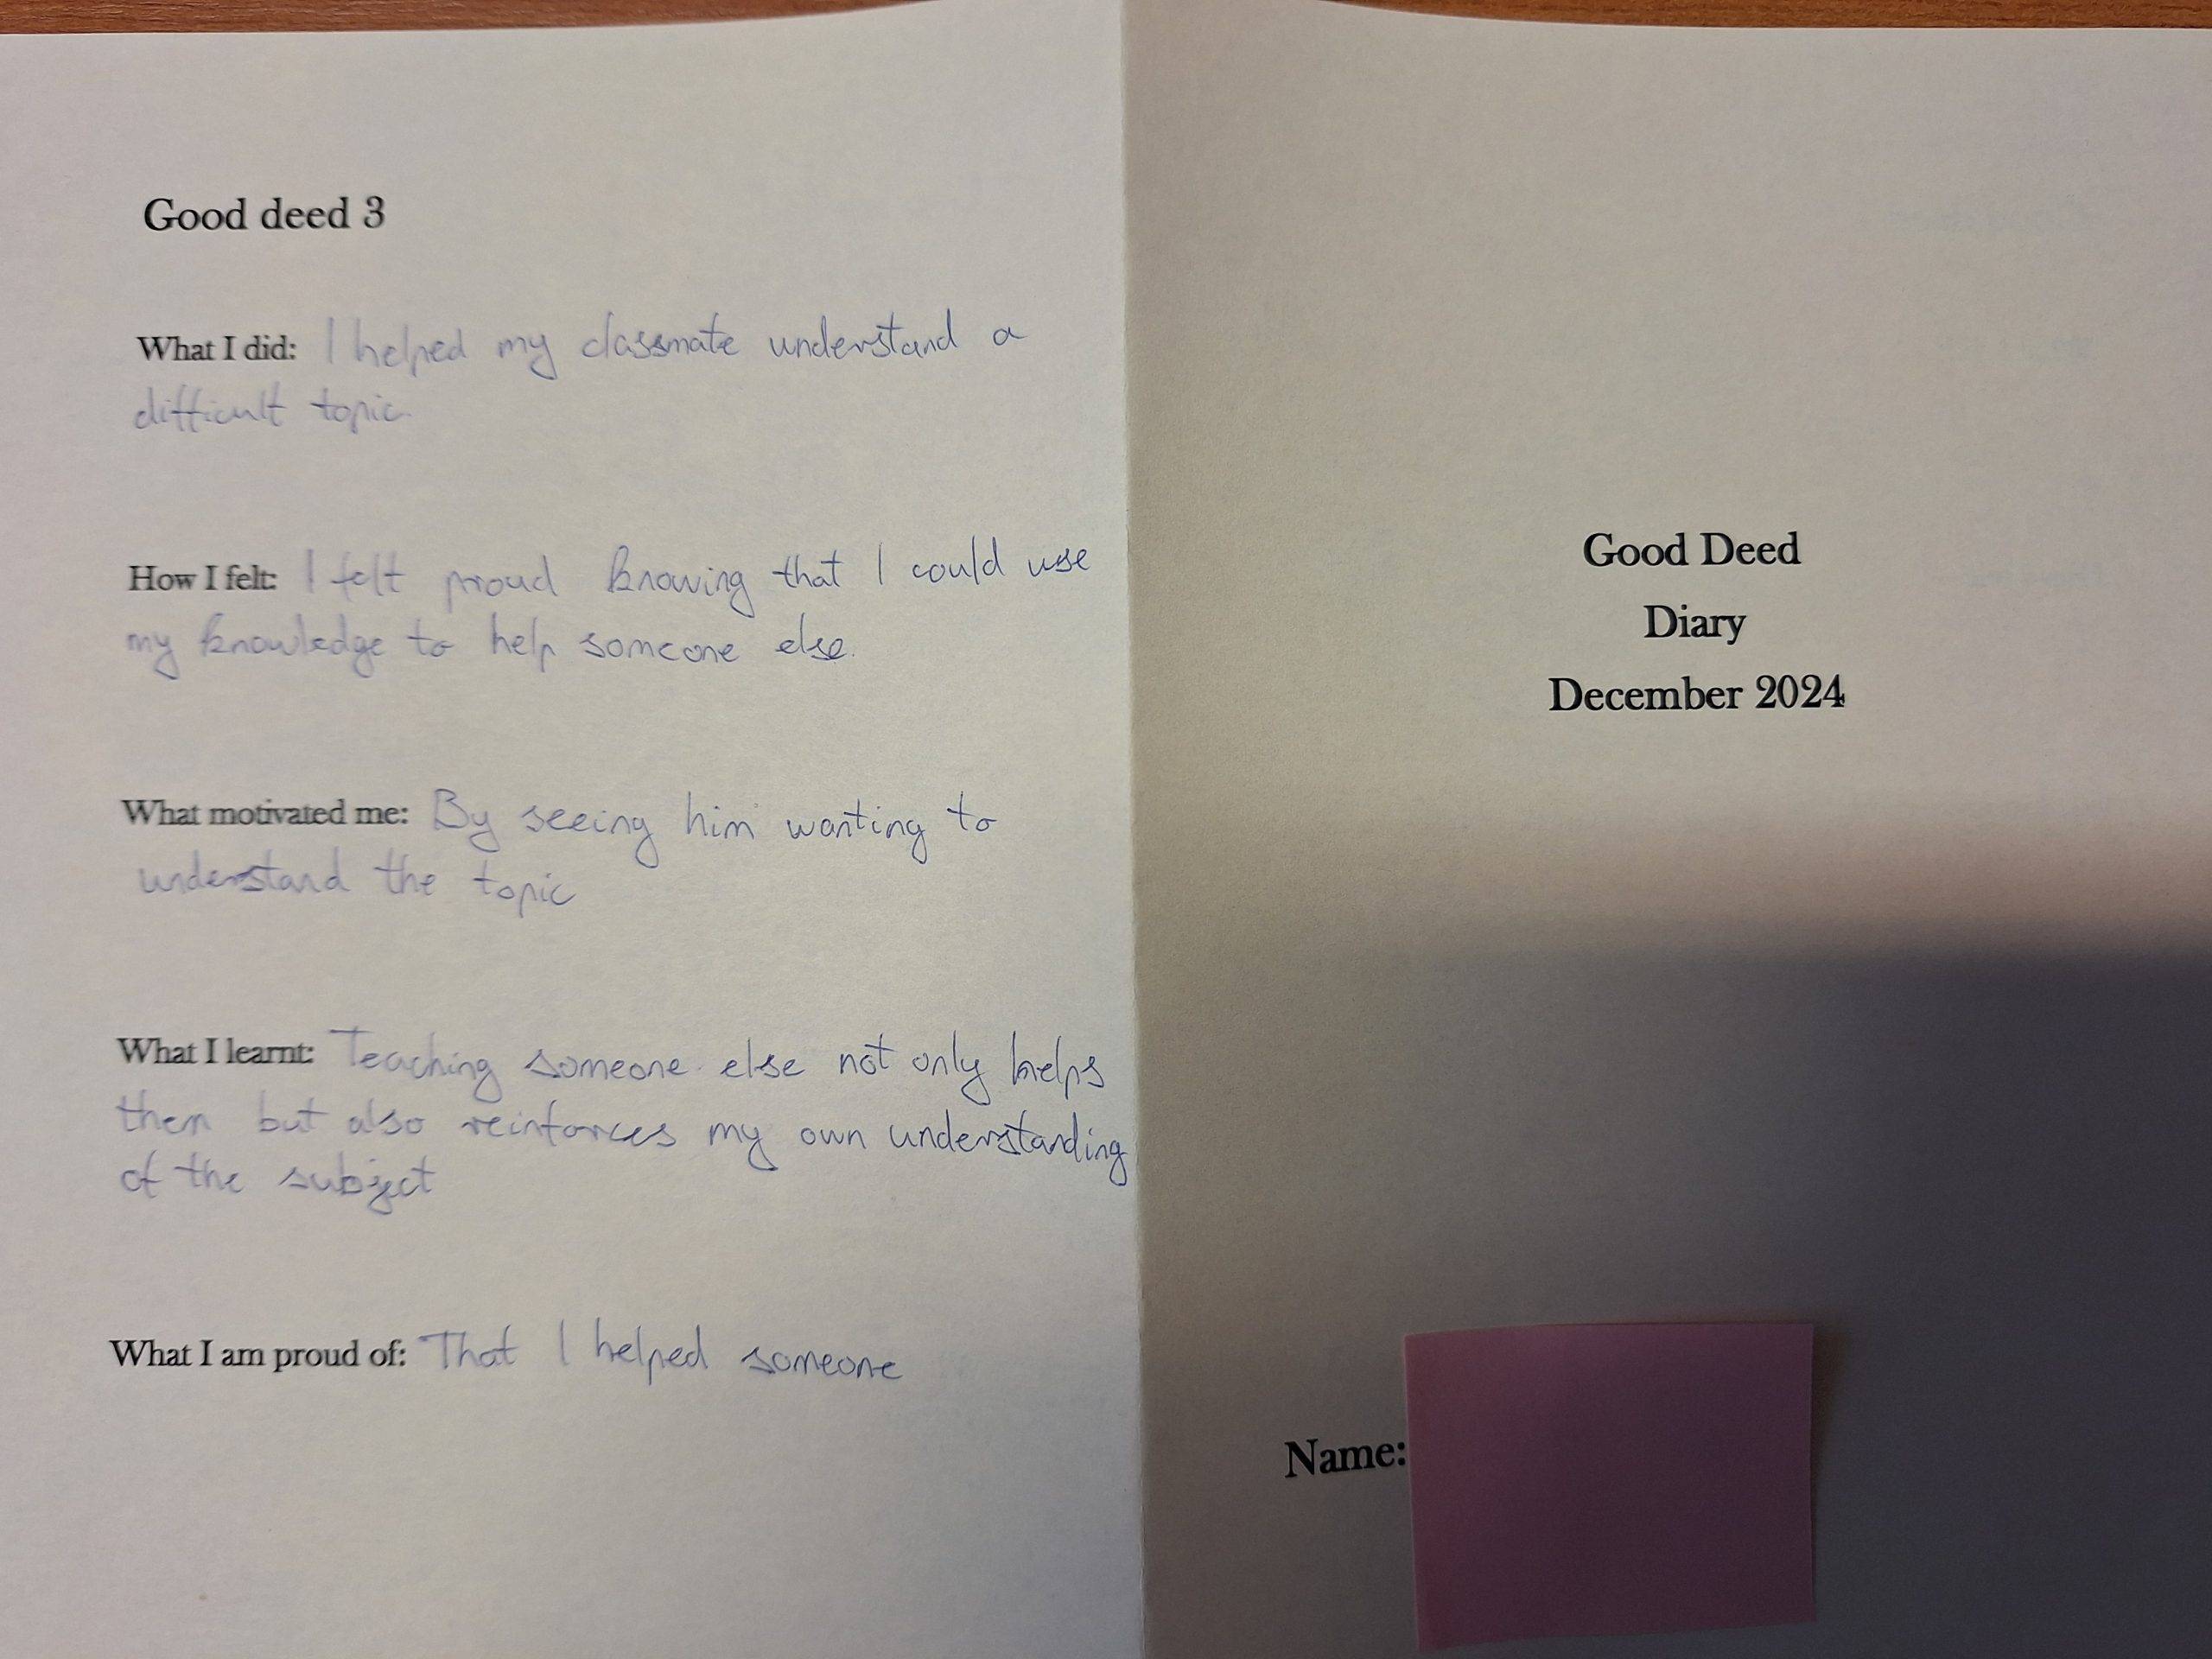 Good deed 3
What I did: I helped my classmate understand a
difficult topic.
How I felt: I felt proud knowing that I could use
my knowledge to help someone else.
What motivated me: By seeing him wanting to
understand the topic
What I learnt: Teaching someone else not only helps
them but also reinforces my own understanding
of the subject
What I am proud of: That I helped someone
Good Deed
Diary
December 2024
Name: